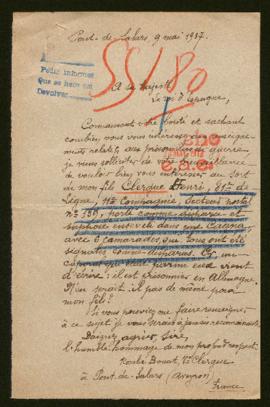 Pont-de-Salars 9 mai 1917.
SS/80
Pedir informes
Que se hace est
Devolver
A sa Majesté
Le roi d'Espagne,
Connaissant votre bonté et sachant
combien vous vous intéressez aux renseigne-
ments relatifs aux prisonniers de guerre,
je viens solliciter de votre bienveillance
de vouloir bien vous intéresser au sort
de mon fils Clergue Henri, 81me de
Ligne, 11e Compagnie, Secteur postal
no 139, porté comme disparu et
supposé enseveli dans une cagna,
avec 6 camarades qui tous ont été
signalés comme disparus. Or, un
parmi eux vient
d'écrire: il est prisonnier en Allemagne.
N'en serait-il pas de même pour
mon fils?
Si vous pouviez me faire renseigner
à ce sujet je vous serais à jamais reconnaissante.
Daignez agréer, Sire,
l'humble hommage de mon profond respect.
Bouat, Vve Clergue
à Pont-de-Salars (Aveyron)
France